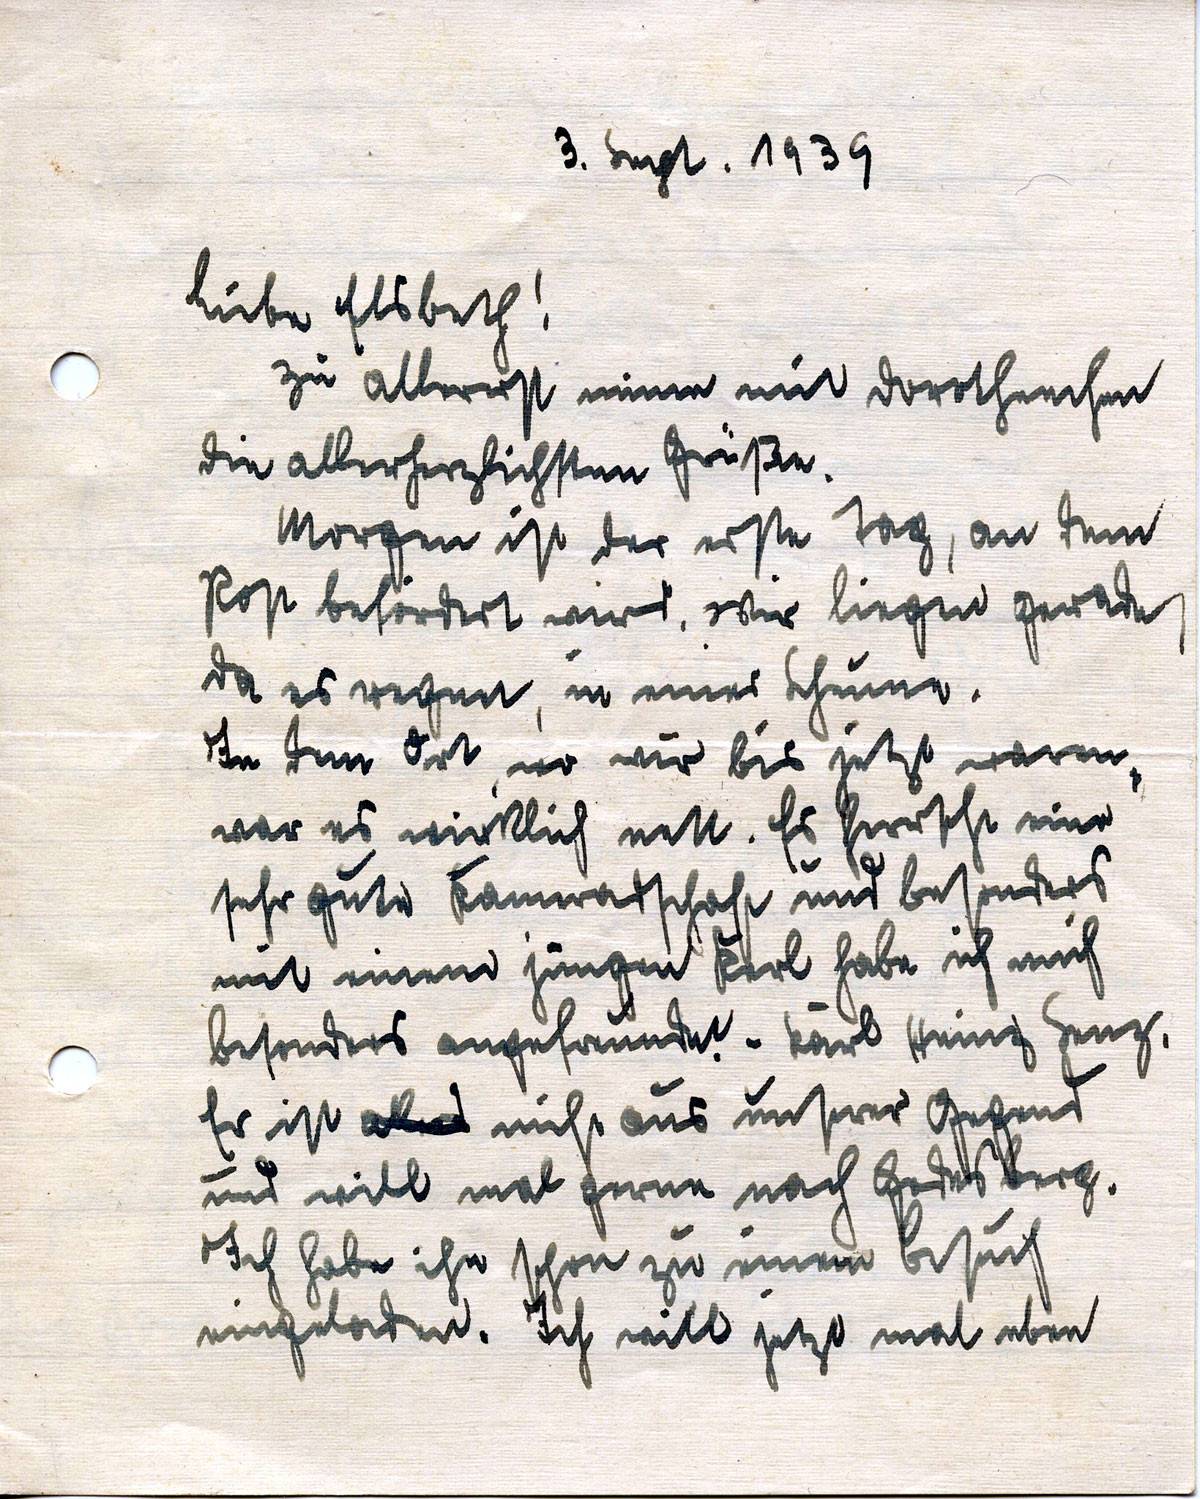 3. Sept. 1939
Liebe Elsbeth!
Zu allererst einen mit Dorotheechen
die allerherzlichsten Grüße.
Morgen ist der erste Tag, an dem
Post befördert wird. Wir liegen gerade,
da es regnet, in einer Scheune.
In dem Ort, wo wir bis jetzt waren,
war es wirklich nett. Es herrscht eine
sehr gute Kameradschaft und besonders
mit einem jungen Kerl habe ich mich
besonders angefreundet. - Karl Heinz Henz.
Er ist nicht aus unserer Gegend
und will mal gerne nach Godesberg.
Ich habe ihn schon zu einem Besuch
eingeladen. Ich will jetzt mal eben